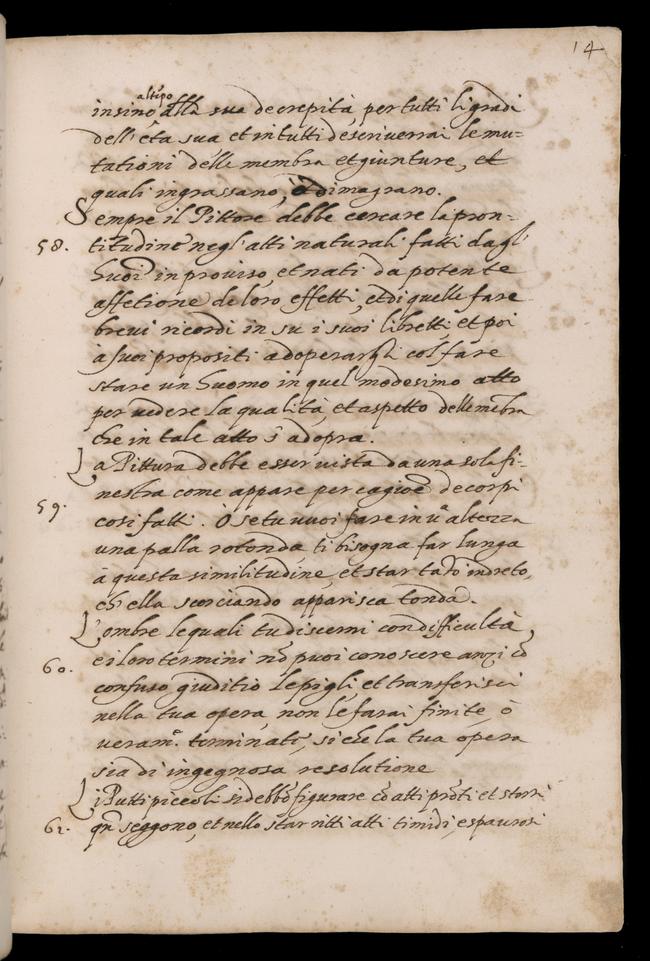 14
altipo
insino alla sua decrepità per tutti li gradi
dell'età sua et in tutti descriverrai le mu=
tationi delle membra et giunture, et
quali ingrassano, ò dimagrano.
Sempre il Pittore debbe cercare la pron=
58. titudine negl'atti naturali fatti dagl'
huoī in proviso, et nati da potente
affetione de loro effetti, et di quelle fare
brevi ricordi in su i suoi libretti et poi
à suoi propositi adoperargli col fare
stare un huomo in quel modesimo atto
per vedere la qualità, et aspetto delle mēbra
che in tale atto s'adopra.
La Pittura debbe esser vista da una sola fi=
nestra come appare per cagioē de corpi
59. cosi fatti. O se tu vuoi fare in ū altezza
una palla rotonda ti bisogna far lunga
à questa similitudine, et star tāto indreto,
ch'ella scorciando apparisca tonda.
L'ombre le quali tu discerni con difficultà,
60. e i loro termini nō puoi conoscere anzi cō
confuso giuditio le pigli et transferisci
nella tua opera non le farai finite, ò
veram.e terminati, si che la tua opera
sia di ingegnosa resolutione
Li Putti piccoli si debbō figurare cō atti prōti et storti
61. qn̄ seggono, et nello star ritti atti timidi, e spaurosi